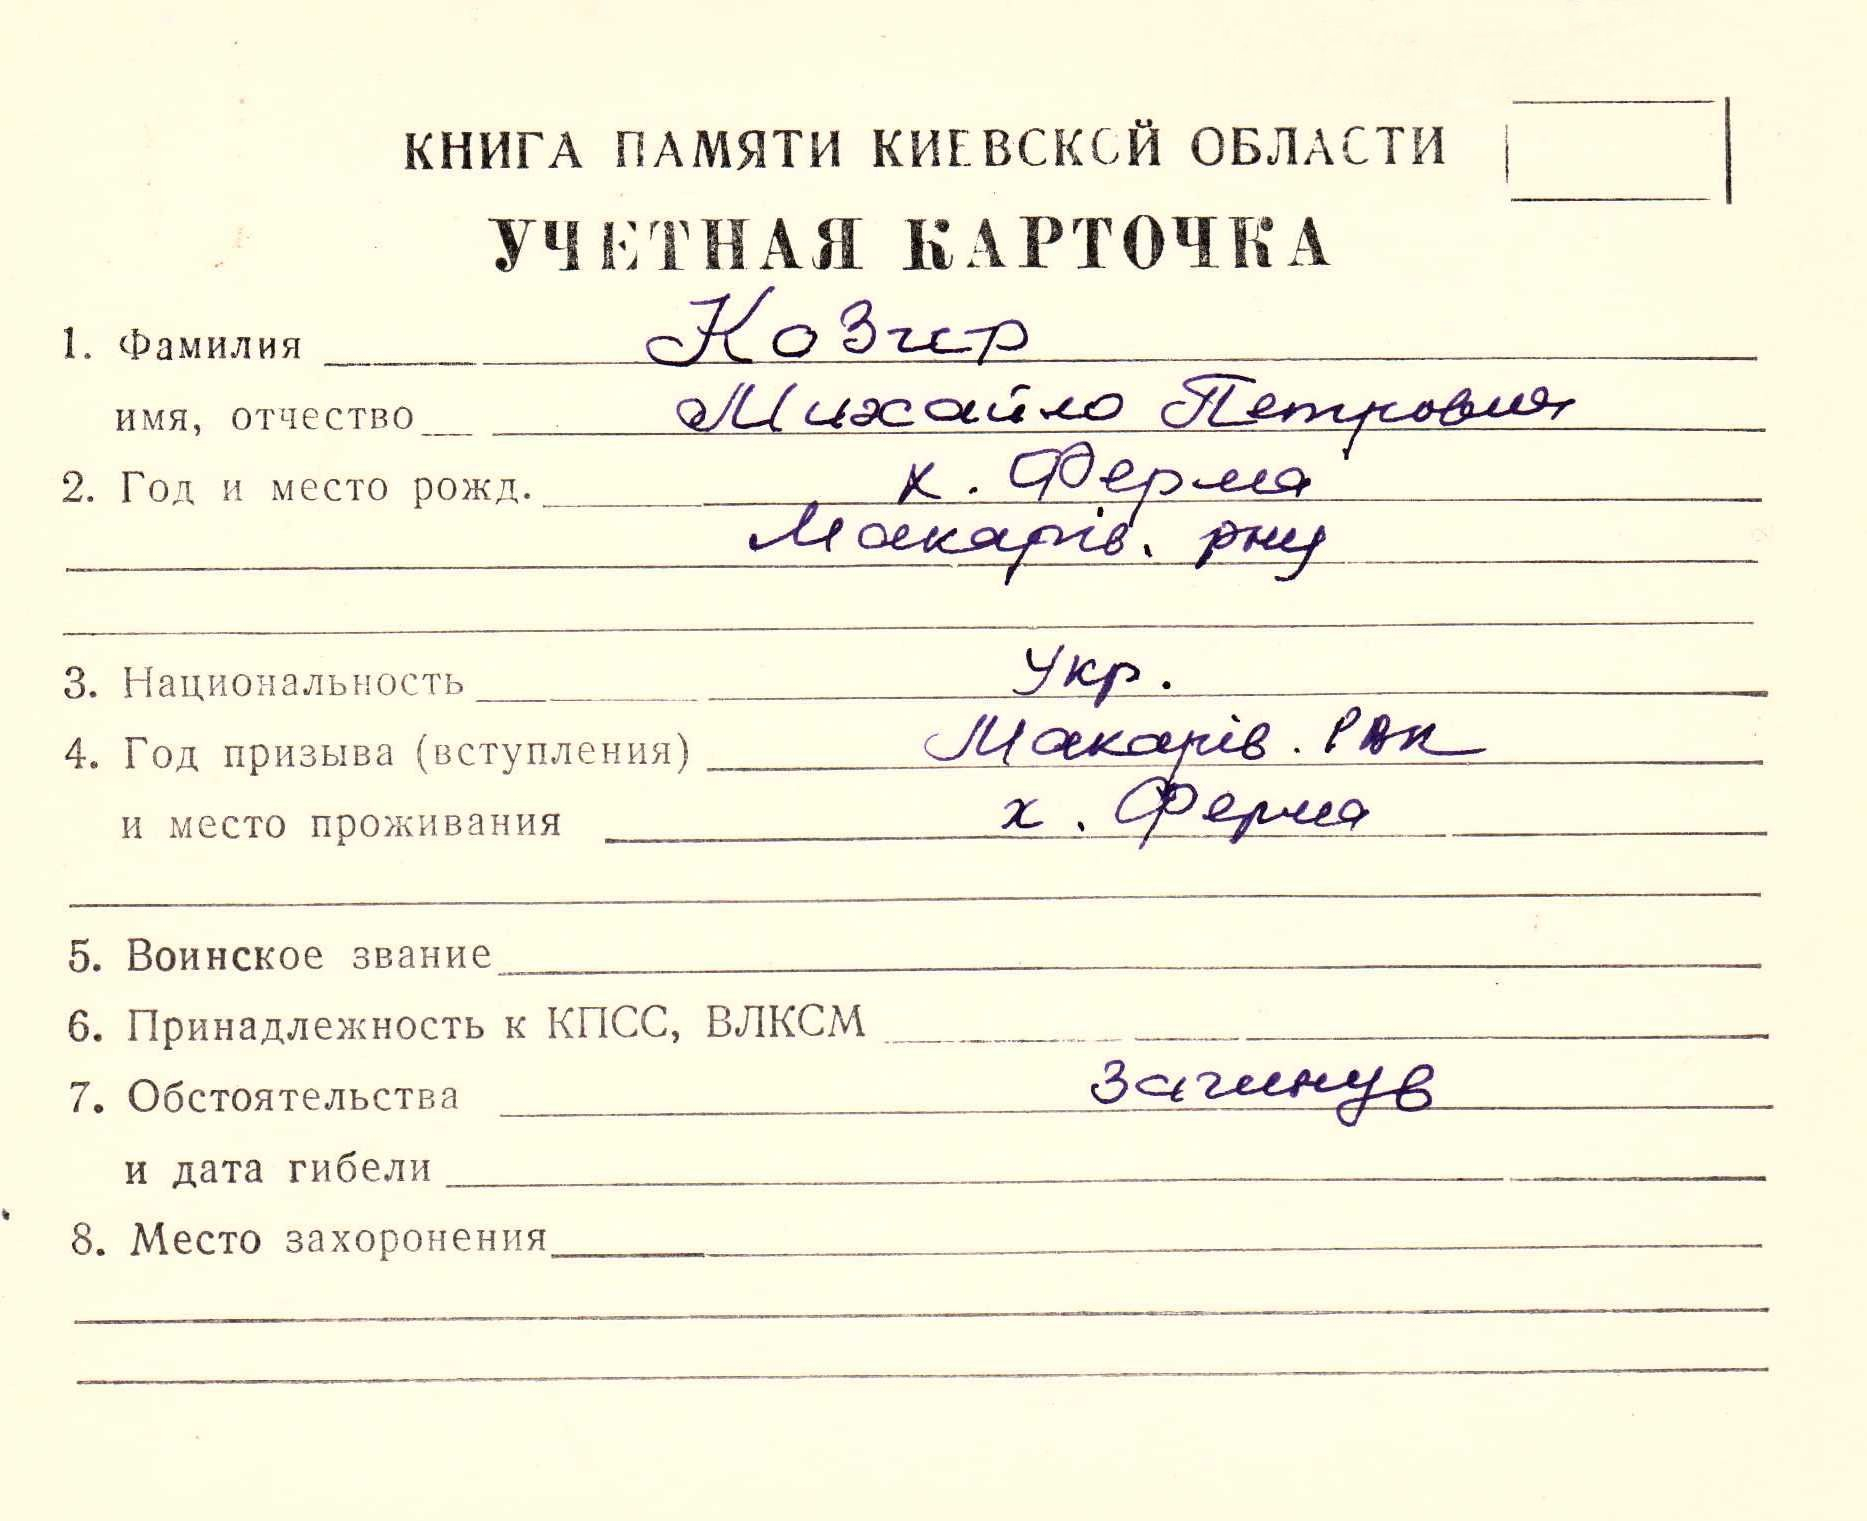 КНИГА ПАМЯТИ КИЕВСКОЙ ОБЛАСТИ
УЧЕТНАЯ КАРТОЧКА
1. Фамилия Козир
имя, отчество Михайло Петрович
2. Год и место рожд. х. Ферма
Макарів. рну
3. Национальность Укр.
4. Год призыва (вступления) Макарів. РВК
и место проживания х. Ферма
5. Воинское звание
6. Принадлежность к КПСС, ВЛКСМ
7. Обстоятельства загинув
и дата гибели
8. Место захоронения